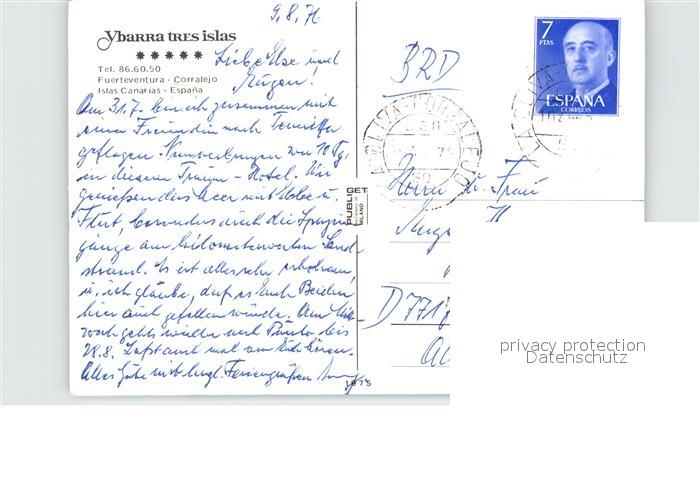 9.8.76
Ybarra tres islas
Tel. 86.60.50
Fuerteventura - Corralejo
Islas Canarias - España
Liebe Else und
Eugen!
Am 31.7. bin ich zusammen mit
einer Freundin nach Teneriffa
geflogen. Nun verbringen wir 10 Tg.
in diesem Traum-Hotel. Wir
genießen das Meer mit Ebbe u.
Flut, besonders auch die Spazier
gänge am kilometerweiten Sand
strand. Es ist alles sehr erholsam
u. ich glaube, daß es Euch Beiden
hier auch gefallen würde. Am Mitt
woch gehts wieder nach Puerto bis
28.8. Laßt auch mal von Euch hören.
Alles Gute mit hrzl. Feriengrüßen
PUBLIGET
MILANO
1875
BRD
7
PTAS
ESPAÑA
CORREOS
Herrn u. Frau
D 771
privacy protection
Datenschutz